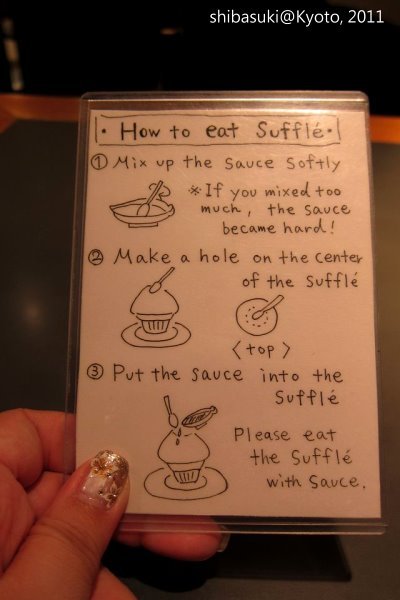 shibasuki@Kyoto, 2011
• How to eat Sufflé •
① Mix up the sauce softly
※ If you mixed too
much, the sauce
became hard!
② Make a hole on the center
of the sufflé
<top>
③ Put the sauce into the
Sufflé
Please eat
the Sufflé
with sauce.